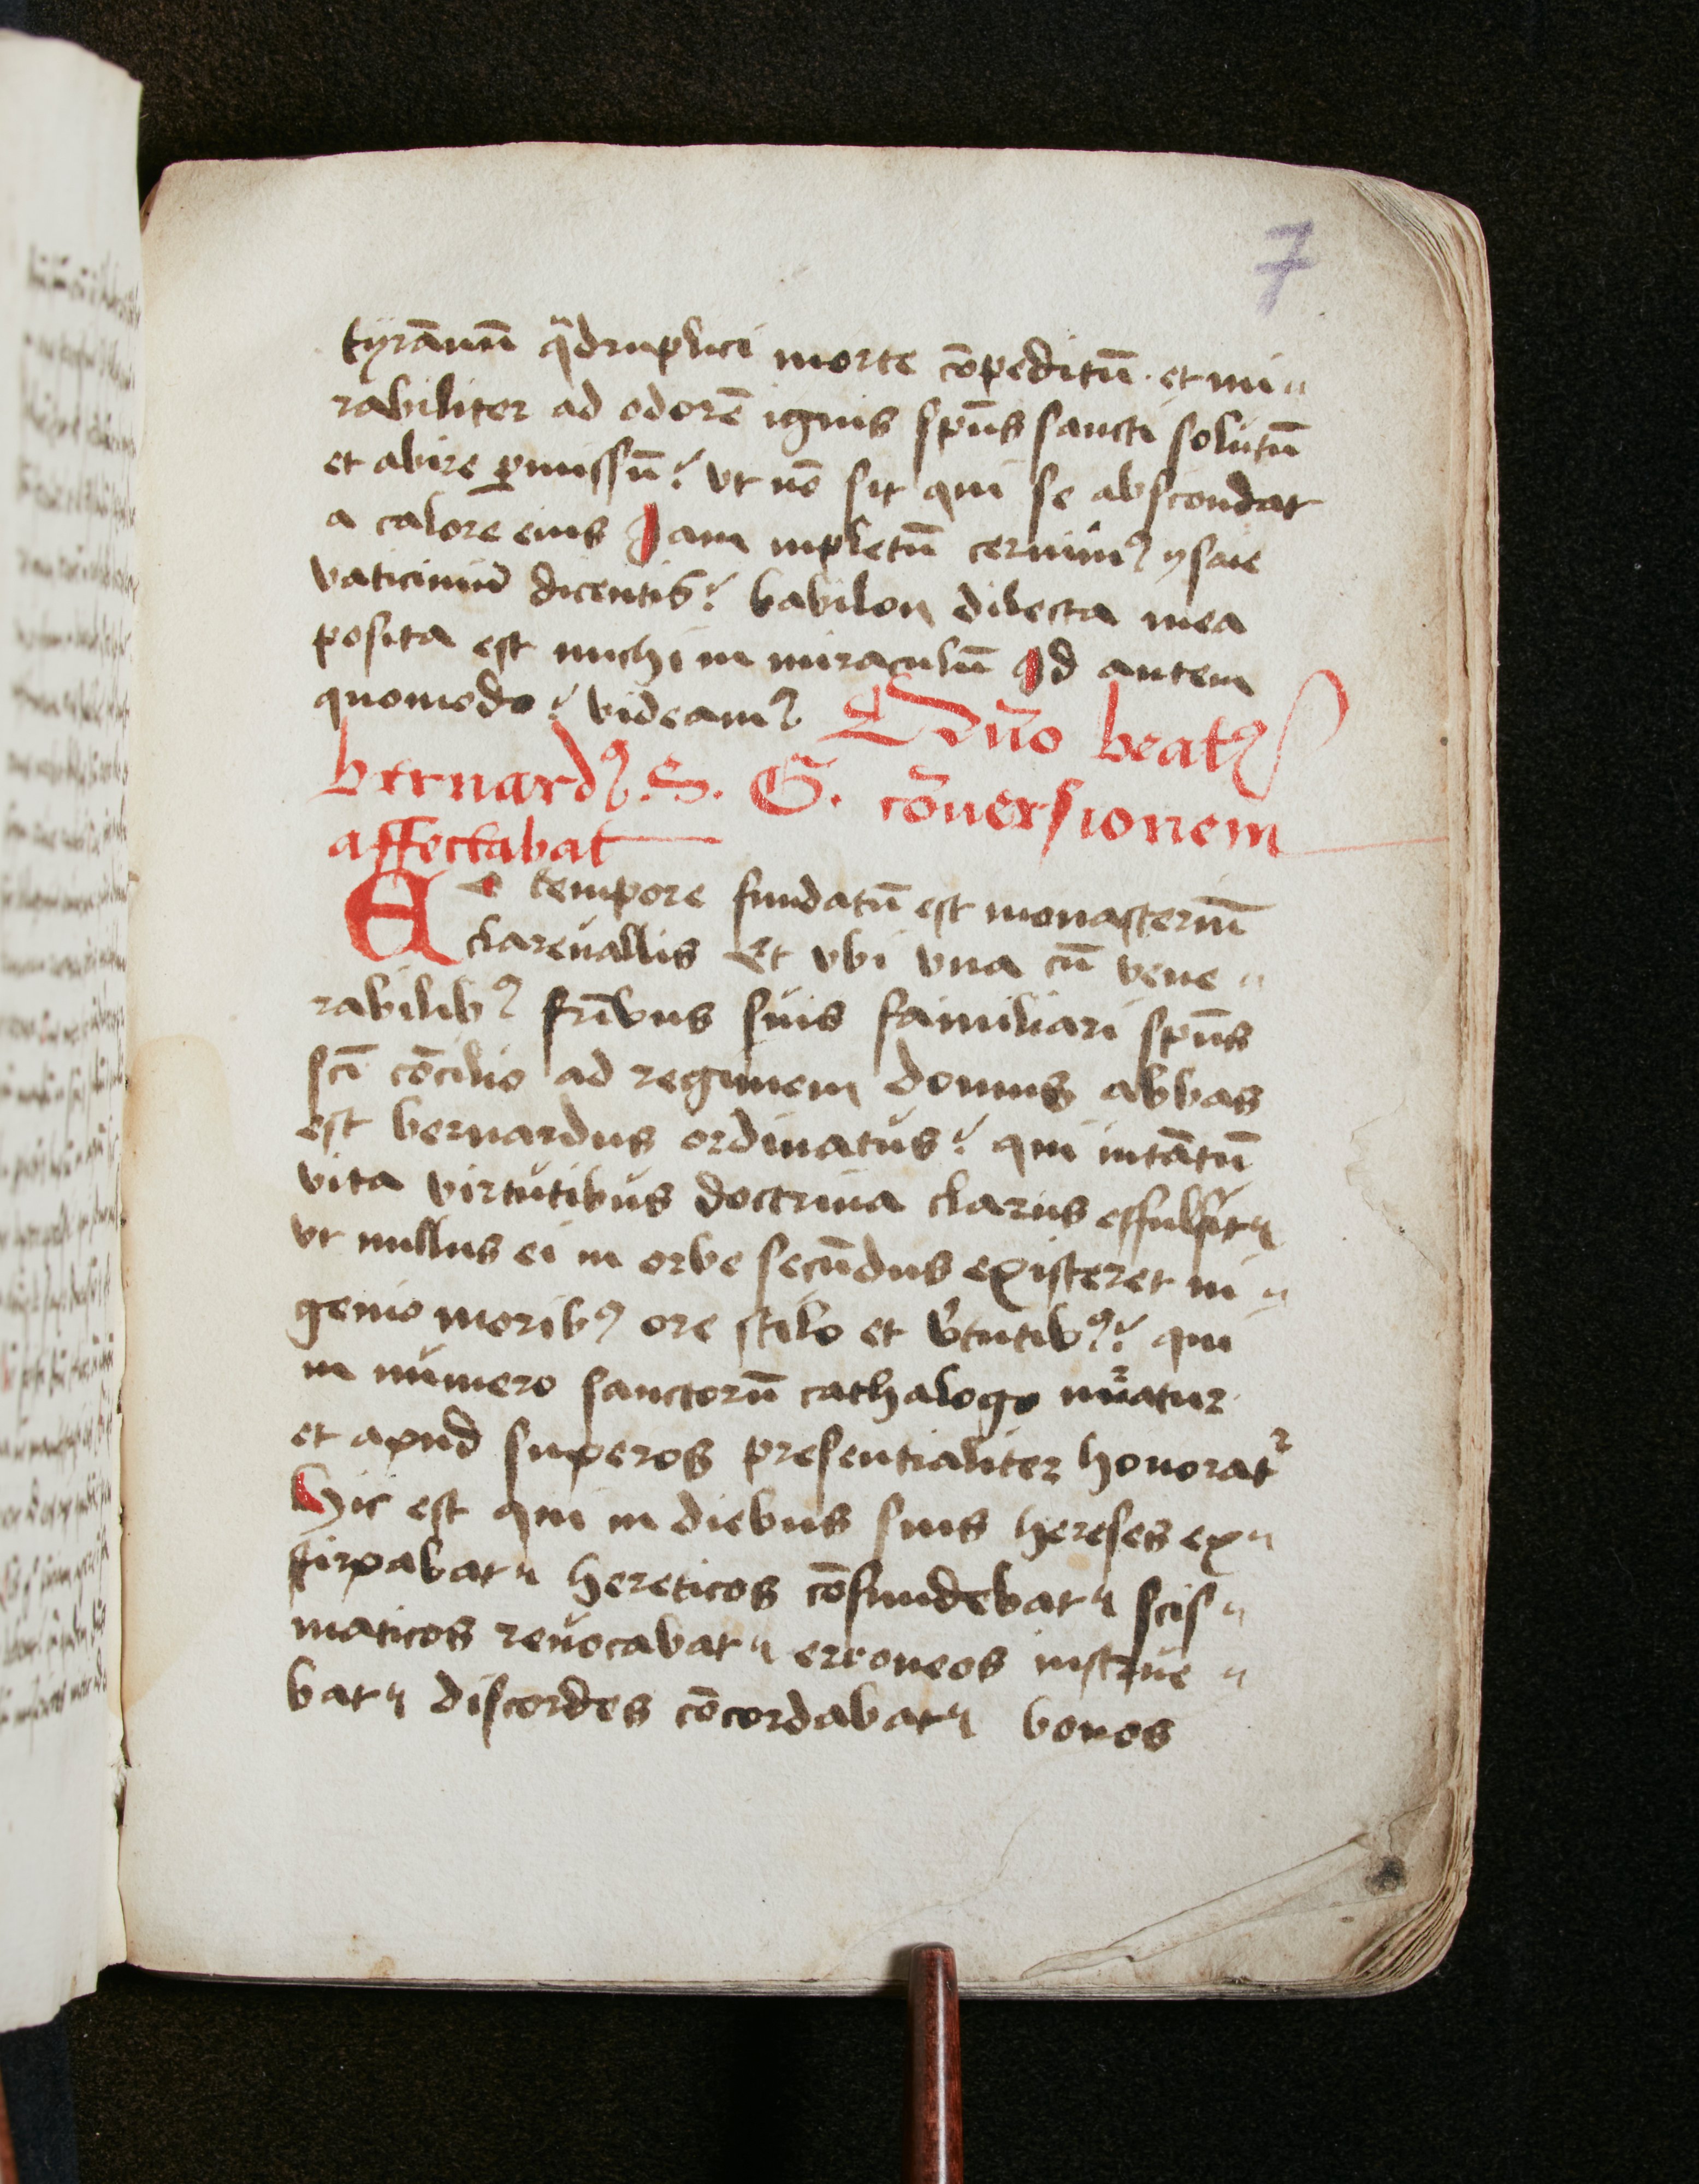 7
tyrānuū q̄druplici morte cōpeditū. et mi„
rabiliter ad odorē ignis spūs sancti solutū
et abire ꝑmissū? vt nō sit qui se abscondat
a calore eius Jam inpletū cernimꝰ ysaie
vaticiniū dicentis? babilon dilecta mea
posita est michi in miraculū Id autem
quomodo? videamꝰ
beatꝰ
bernardꝰ. S. G. cōuersionem
affectabat
Eo tempore fundatū est monasteriū
clareuallis Et vbi vna cū vene„
rabilibꝰ frībus suis familiari spūs
scī cōcilio ad regimen domus abbas
est bernardus ordinatus? qui intātū
vita virtutibus doctrina clarius effulsit„
vt nullus ei in orbe secūdus existeret in„
genio moribꝰ ore stilo et v̓tutibꝰ? qui
in numero sanctorū cathalogo nūatur
et apud superos presentialiter honorat᷑
Hic est qui in diebus suis hereses ex„
stirpabat„ hereticos cōfundebat„ scis„
maticos reuocabat„ erroneos instrue„
bat„ discordes cōcordabat„ bonos